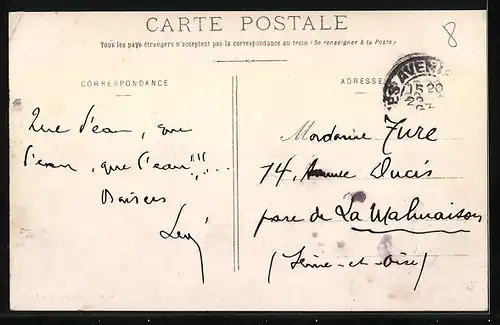 CARTE POSTALE
Tous les pays étrangers n'acceptent pas la correspondance au recto (Se renseigner à la Poste)
CORRESPONDANCE
ADRESSE
8
15 20
22
Que d'eau, que
l'eau, que l'eau!!!...
Baisers
Madame Fure
14, Avenue Ducis
parc de La Malmaison
(Seine-et-Oise)